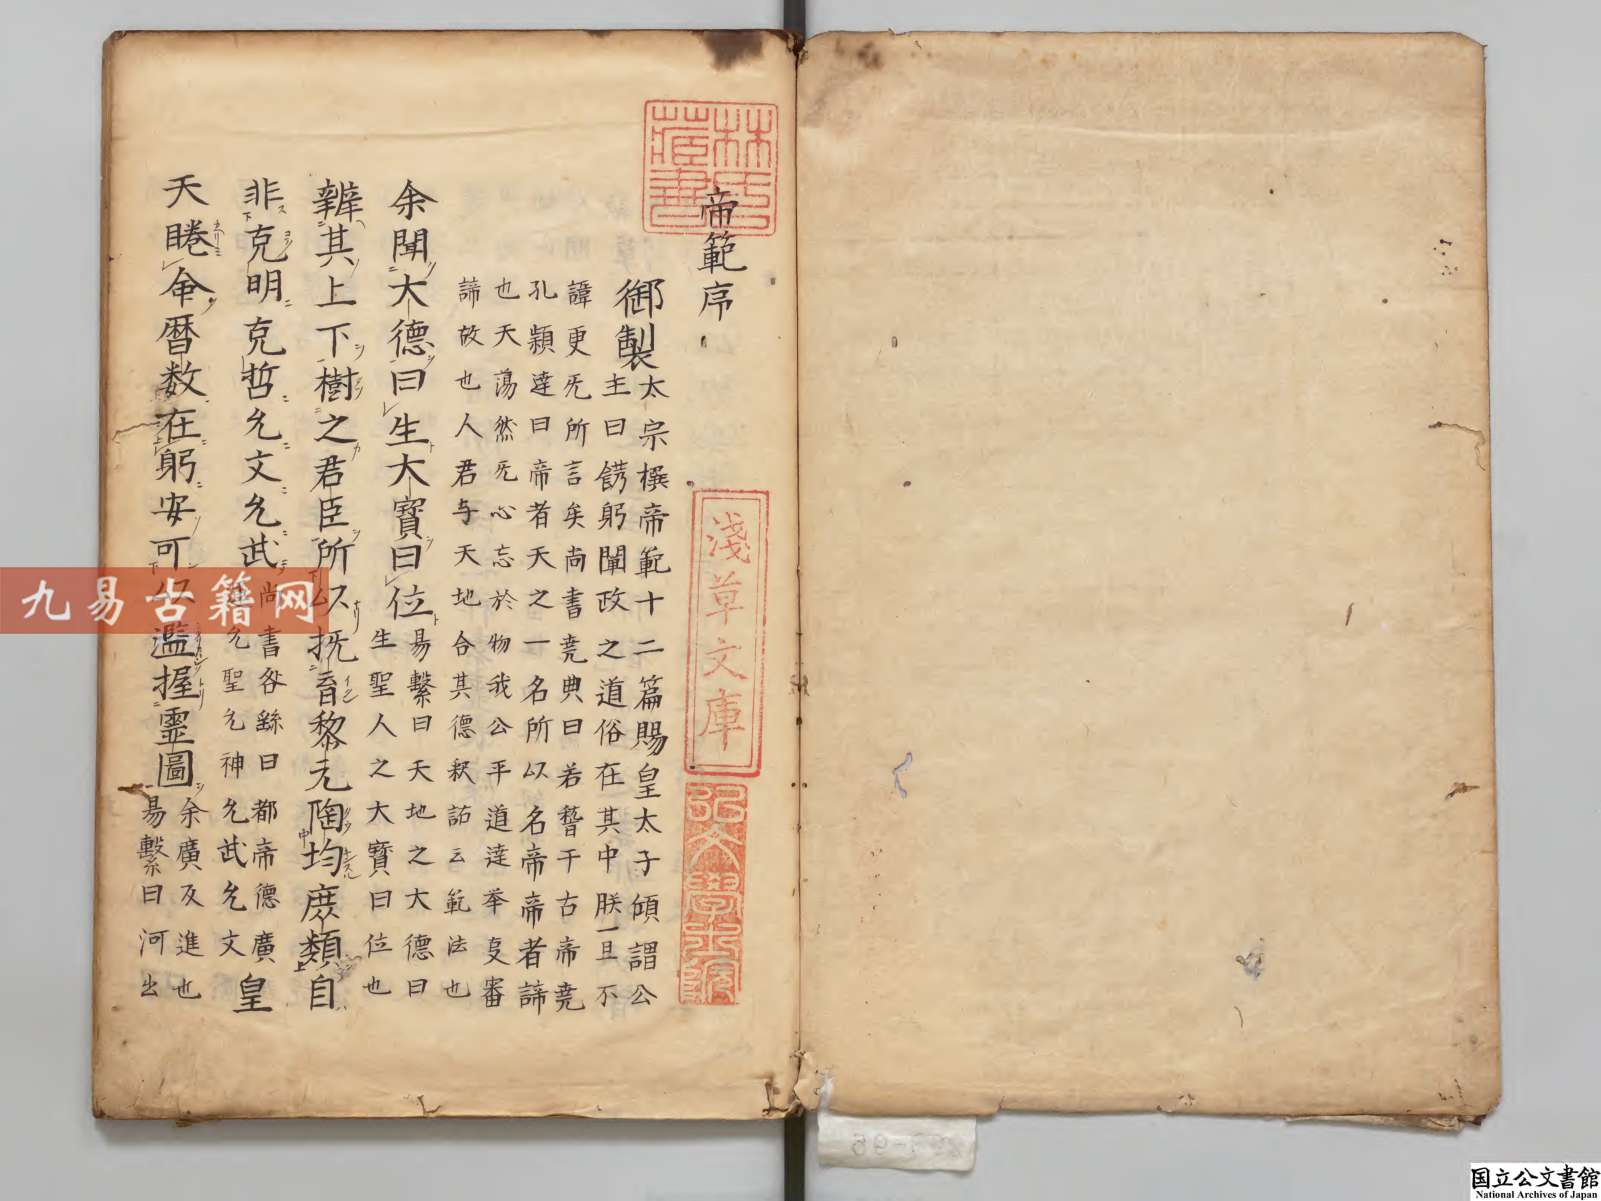 帝範序
御製
太宗撰帝範十二篇賜皇太子傾謂公
主曰餝躬闡政之道俗在其中朕一旦不
諱更旡所言矣尚書堯典曰若嵇干古帝堯
孔穎達曰帝者天之一名所以名帝帝者諦
也天蕩然旡心忘於物我公平道達举叓審
諦故也人君与天地合其德釈詁云範法也
余聞大德曰生大寳曰位
易繫曰天地之大德曰
生聖人之大寳曰位也
辨其上下樹之君臣所以抚育黎元陶均庶類自
非克明克哲允文允武
尚書咎繇曰都帝德廣
允聖允神允武允文
皇
天睠命曆数在躬安可以濫握霊圖
余廣及進也
易繫曰河出
林氏藏書
淺草文庫
弘文學士院
九易古籍网
国立公文書館
National Archives of Japan